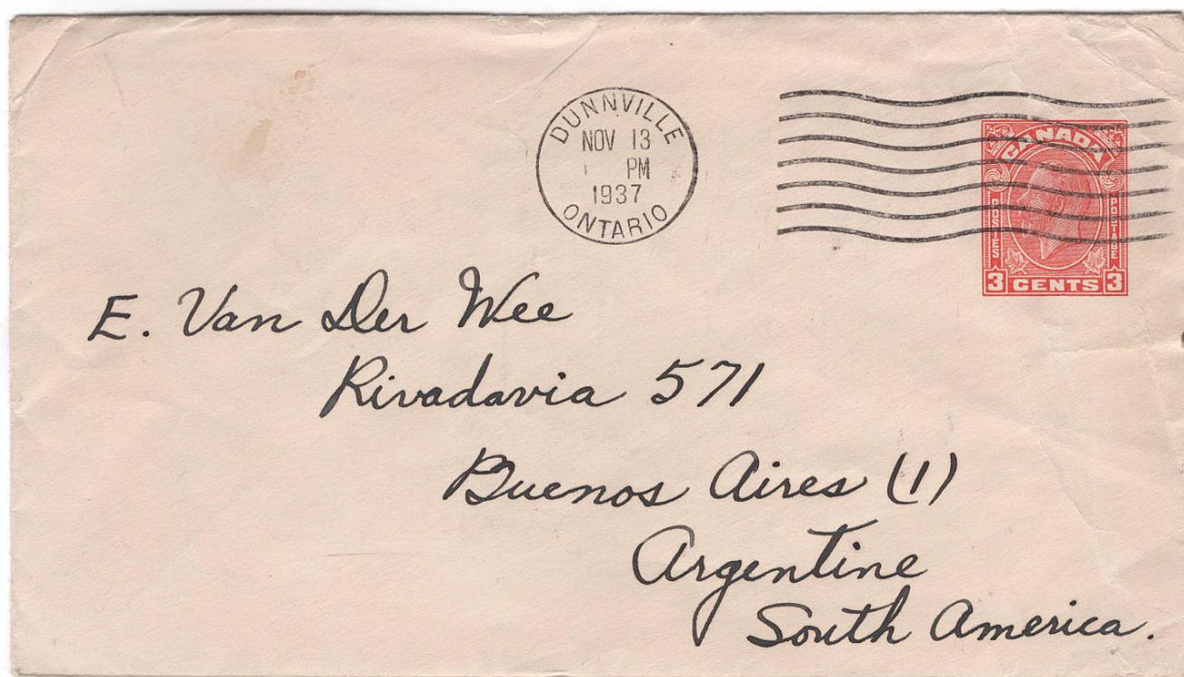 DUNNVILLE
NOV 13
PM
1937
ONTARIO
CANADA
POSTES
POSTAGE
3 CENTS 3
E. Van Der Wee
Rivadavia 571
Buenos Aires (1)
Argentine
South America.